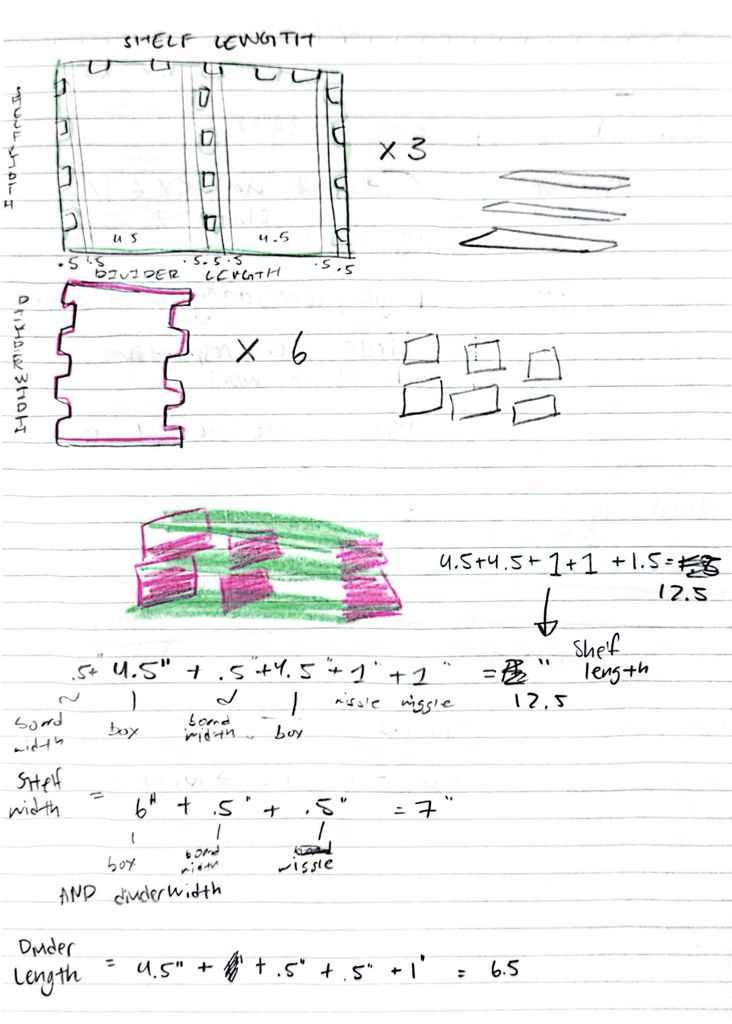 SHELF LENGTH
SHELF WIDTH
x 3
4.5 4.5
.5 .5 .5 .5 .5 .5 .5
DIVIDER LENGTH
DIVIDER WIDTH
x 6
4.5+4.5+1+1 +1.5=
12.5
.5+" 4.5" + .5"+4.5"+1" +1" = " Shelf length
12.5
board width box board width box wiggle wiggle
Shelf width = 6" + .5" + .5" = 7"
box board width wiggle
AND divider width
Divider Length = 4.5" + + .5" + .5" + 1" = 6.5